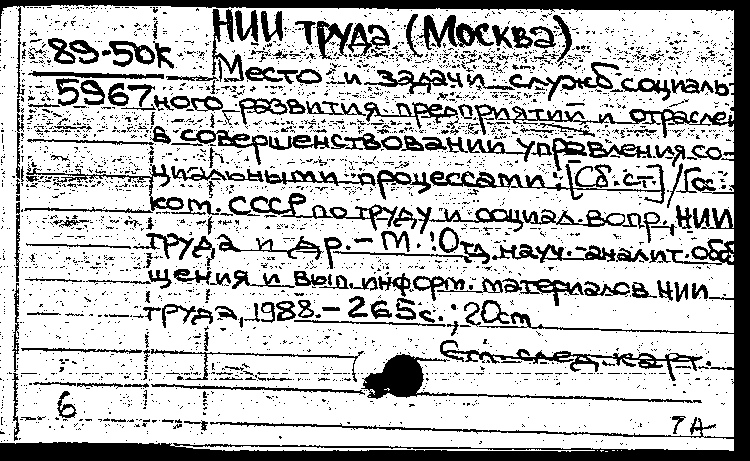 НИИ труда (Москва)
89-50к
5967
Место и задачи служб социаль-
ного развития предприятий и отраслей
в совершенствовании управления со-
циальными процессами: [Сб. ст.] / Гос.
ком. СССР по труду и социал. вопр., НИИ
труда и др. – М.: Отд. науч.-аналит. обоб
щения и вып. информ. материалов НИИ
труда, 1988. – 265с.; 20см.
См. след. карт.
6
7А